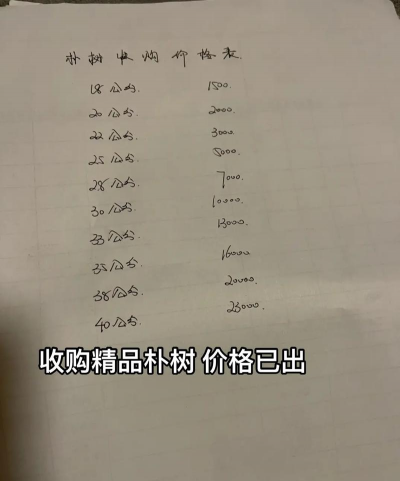 朴树收购价格表.
18公分. 1500.
20公分. 2000.
22公分. 3000.
25公分. 5000.
28公分. 7000.
30公分. 10000.
33公分. 13000.
35公分. 16000
38公分. 20000.
40公分. 23000.
收购精品朴树 价格已出